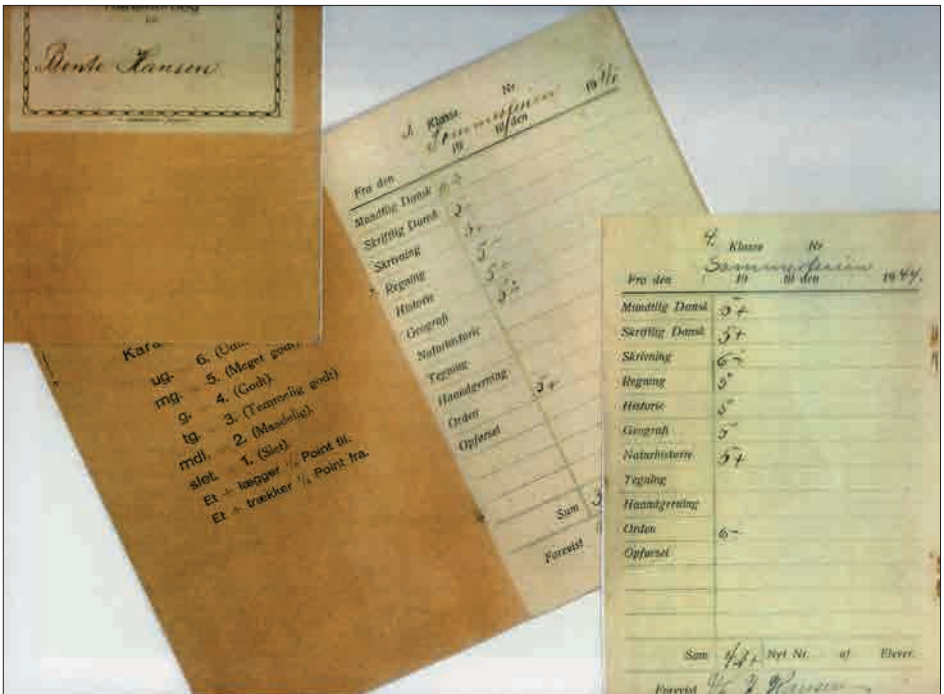 Bente Hansen
Kara
ug. 6.
mg. 5. (Meget godt)
g. 4. (Godt).
tg. 3. (Temmelig godt)
mdl. 2. (Maadelig).
slet. 1. (Slet).
Et + lægger 1/3 Point til.
Et ÷ trækker 1/3 Point fra.
3. Klasse Nr
19 til den 19
Fra den
Mundtlig Dansk
Skriftlig Dansk
Skrivning
Regning
Historie
Geografi
Naturhistorie
Tegning
Haandgerning
Orden 5+
Opførsel
Sum
Forevist
4. Klasse Nr
Sommerferien
Fra den 19 til den 1944.
Mundtlig Dansk 5+
Skriftlig Dansk 5+
Skrivning 6-
Regning 5
Historie 5
Geografi 5
Naturhistorie 5+
Tegning
Haandgerning
Orden 6-
Opførsel
Sum Nyt Nr. af Elever.
Forevist Hansen